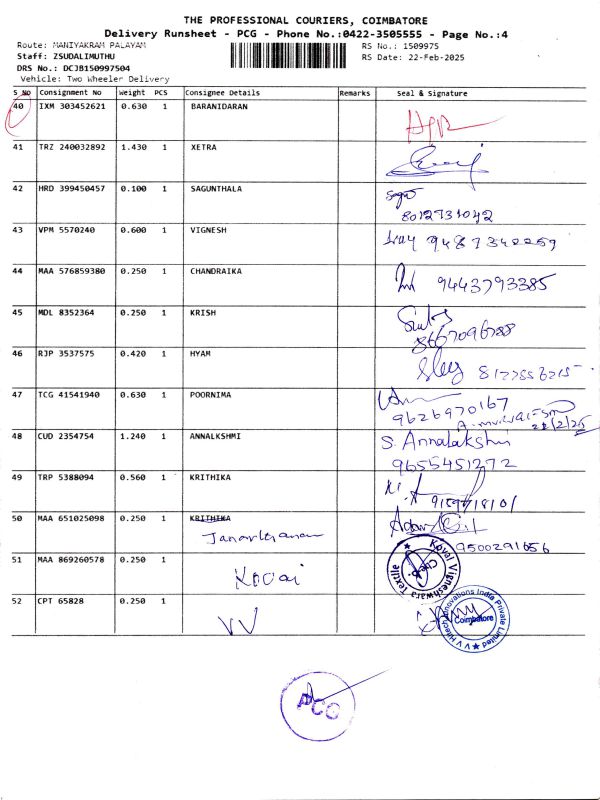 THE PROFESSIONAL COURIERS, COIMBATORE
Delivery Runsheet - PCG - Phone No.:0422-3505555 - Page No.:4
Route: MANIYAKRAM PALAYAM RS No.: 1509975
Staff: ZSUDALIMUTHU RS Date: 22-Feb-2025
DRS No.: DCJB150997504
Vehicle: Two Wheeler Delivery
S No Consignment No Weight PCS Consignee Details Remarks Seal & Signature
40 IXM 303452621 0.630 1 BARANIDARAN
41 TRZ 240032892 1.430 1 XETRA
42 HRD 399450457 0.100 1 SAGUNTHALA
8012731042
43 VPM 5570240 0.600 1 VIGNESH
44 MAA 576859380 0.250 1 CHANDRAIKA 9443793385
45 MDL 8352364 0.250 1 KRISH
8667096788
46 RJP 3537575 0.420 1 HYAM
47 TCG 41541940 0.630 1 POORNIMA
9626970167
22/2/25
48 CUD 2354754 1.240 1 ANNALKSHMI S. Annalakshmi
9655451272
49 TRP 5388094 0.560 1 KRITHIKA
50 MAA 651025098 0.250 1 KRITHIKA
Janarthanan
9500291056
51 MAA 869260578 0.250 1 Kovai
Koval Vigneshwara Textile
CBE
52 CPT 65828 0.250 1 VV
V V Hitech Innovations India Private Limited
Coimbatore
PCG